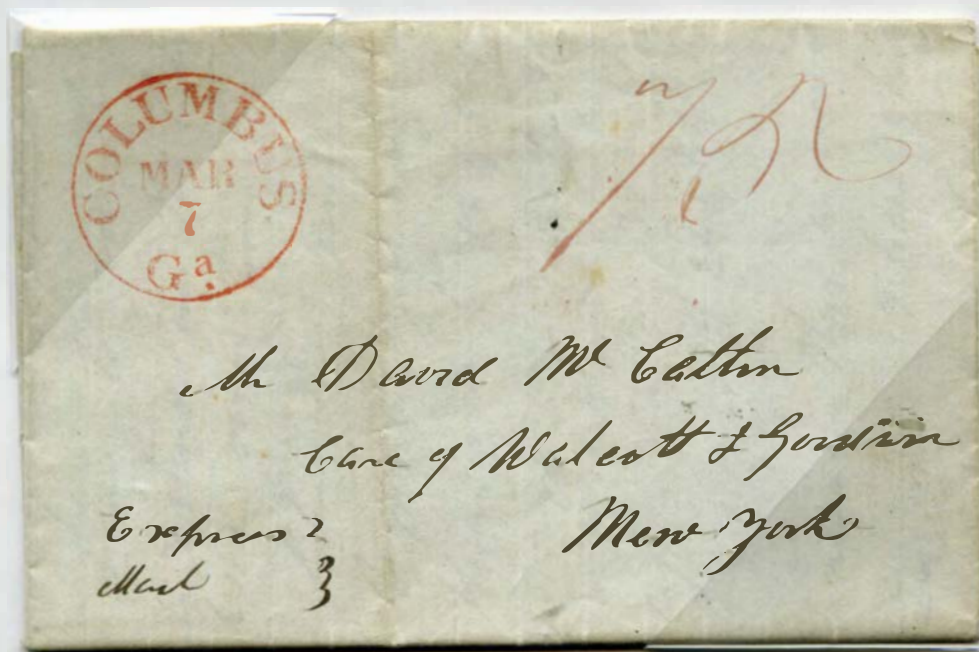 COLUMBUS
MAR
7
Ga.
Mr David Mc Catlin
Care of Walcott & Goodwin
New York
Express
Mail